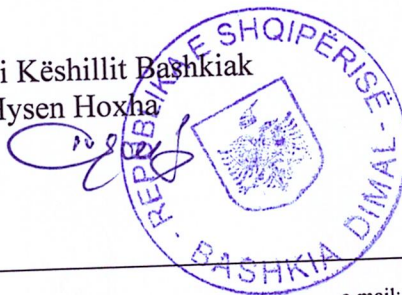 i Këshillit Bashkiak
Hysen Hoxha
- REPUBLIKA E SHQIPËRISË -
BASHKIA DIMAL
mail: